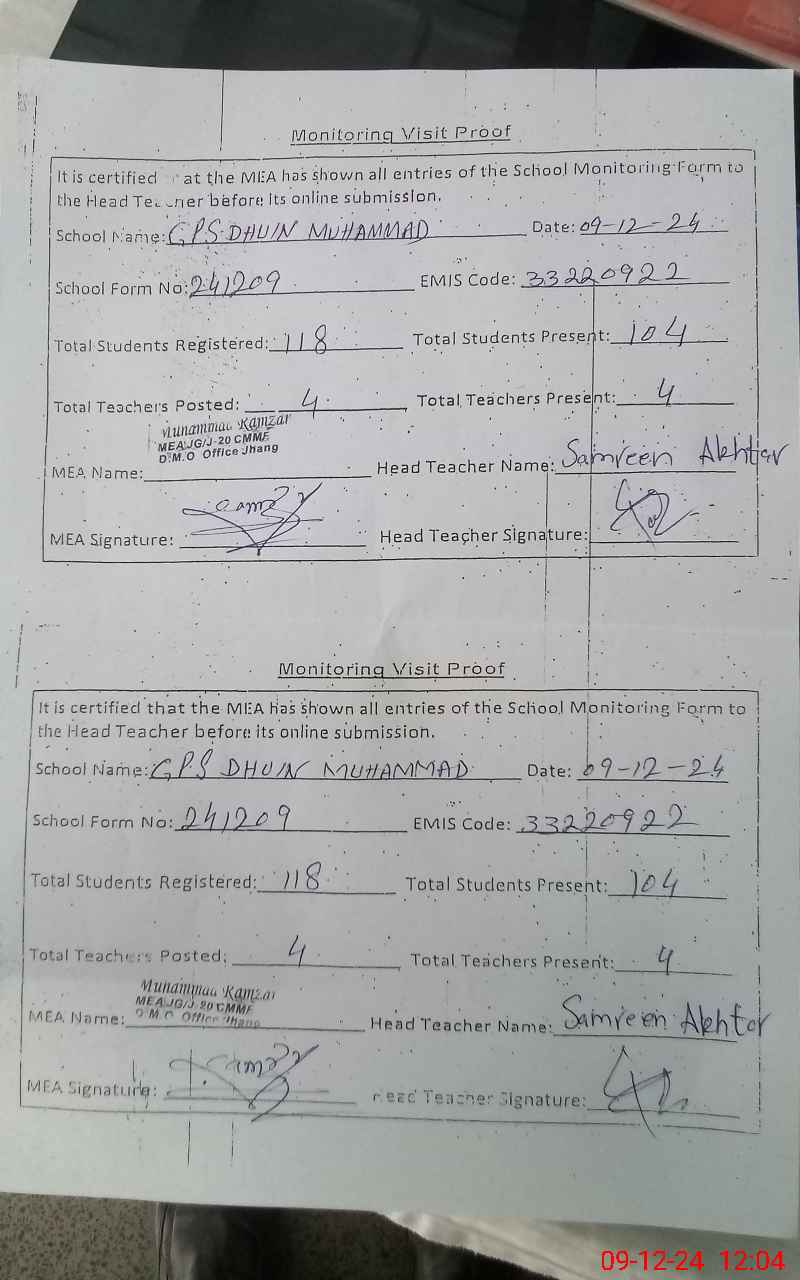 Monitoring Visit Proof
It is certified at the MEA has shown all entries of the School Monitoring Form to
the Head Teacher before its online submission.
School Name: GPS DHUIN MUHAMMAD Date: 09-12-24
School Form No: 241209 EMIS Code: 33220922
Total Students Registered: 118 Total Students Present: 104
Total Teachers Posted: 4 Total Teachers Present: 4
Muhammad Ramzan
MEA JG/J-20 CMMF
D.M.O Office Jhang
MEA Name: Head Teacher Name: Samreen Akhtar
MEA Signature: Head Teacher Signature:
Monitoring Visit Proof
It is certified that the MEA has shown all entries of the School Monitoring Form to
the Head Teacher before its online submission.
School Name: GPS DHUIN MUHAMMAD Date: 09-12-24
School Form No: 241209 EMIS Code: 33220922
Total Students Registered: 118 Total Students Present: 104
Total Teachers Posted: 4 Total Teachers Present: 4
Muhammad Ramzan
MEA JG/J-20 CMMF
D.M.O Office Jhang
MEA Name: Head Teacher Name: Samreen Akhtar
MEA Signature: Head Teacher Signature:
09-12-24 12:04